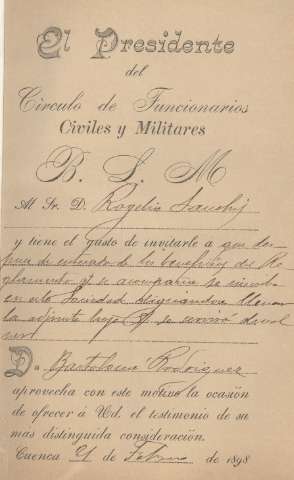 El Presidente
del
Círculo de Funcionarios
Civiles y Militares
B. L. M
Al Sr. D. Rogelio Sanchiz
y tiene el gusto de invitarle a que des-
pues de enterado de los beneficios del Re-
glamento q. se acompaña se
en esta Sociedad
la adjunta hoja q. se servirá devol
ver
Dn Bartolomé Rodriguez
aprovecha con este motivo la ocasión
de ofrecer á Ud. el testimonio de su
más distinguida consideración.
Cuenca 21 de Febrero de 1898